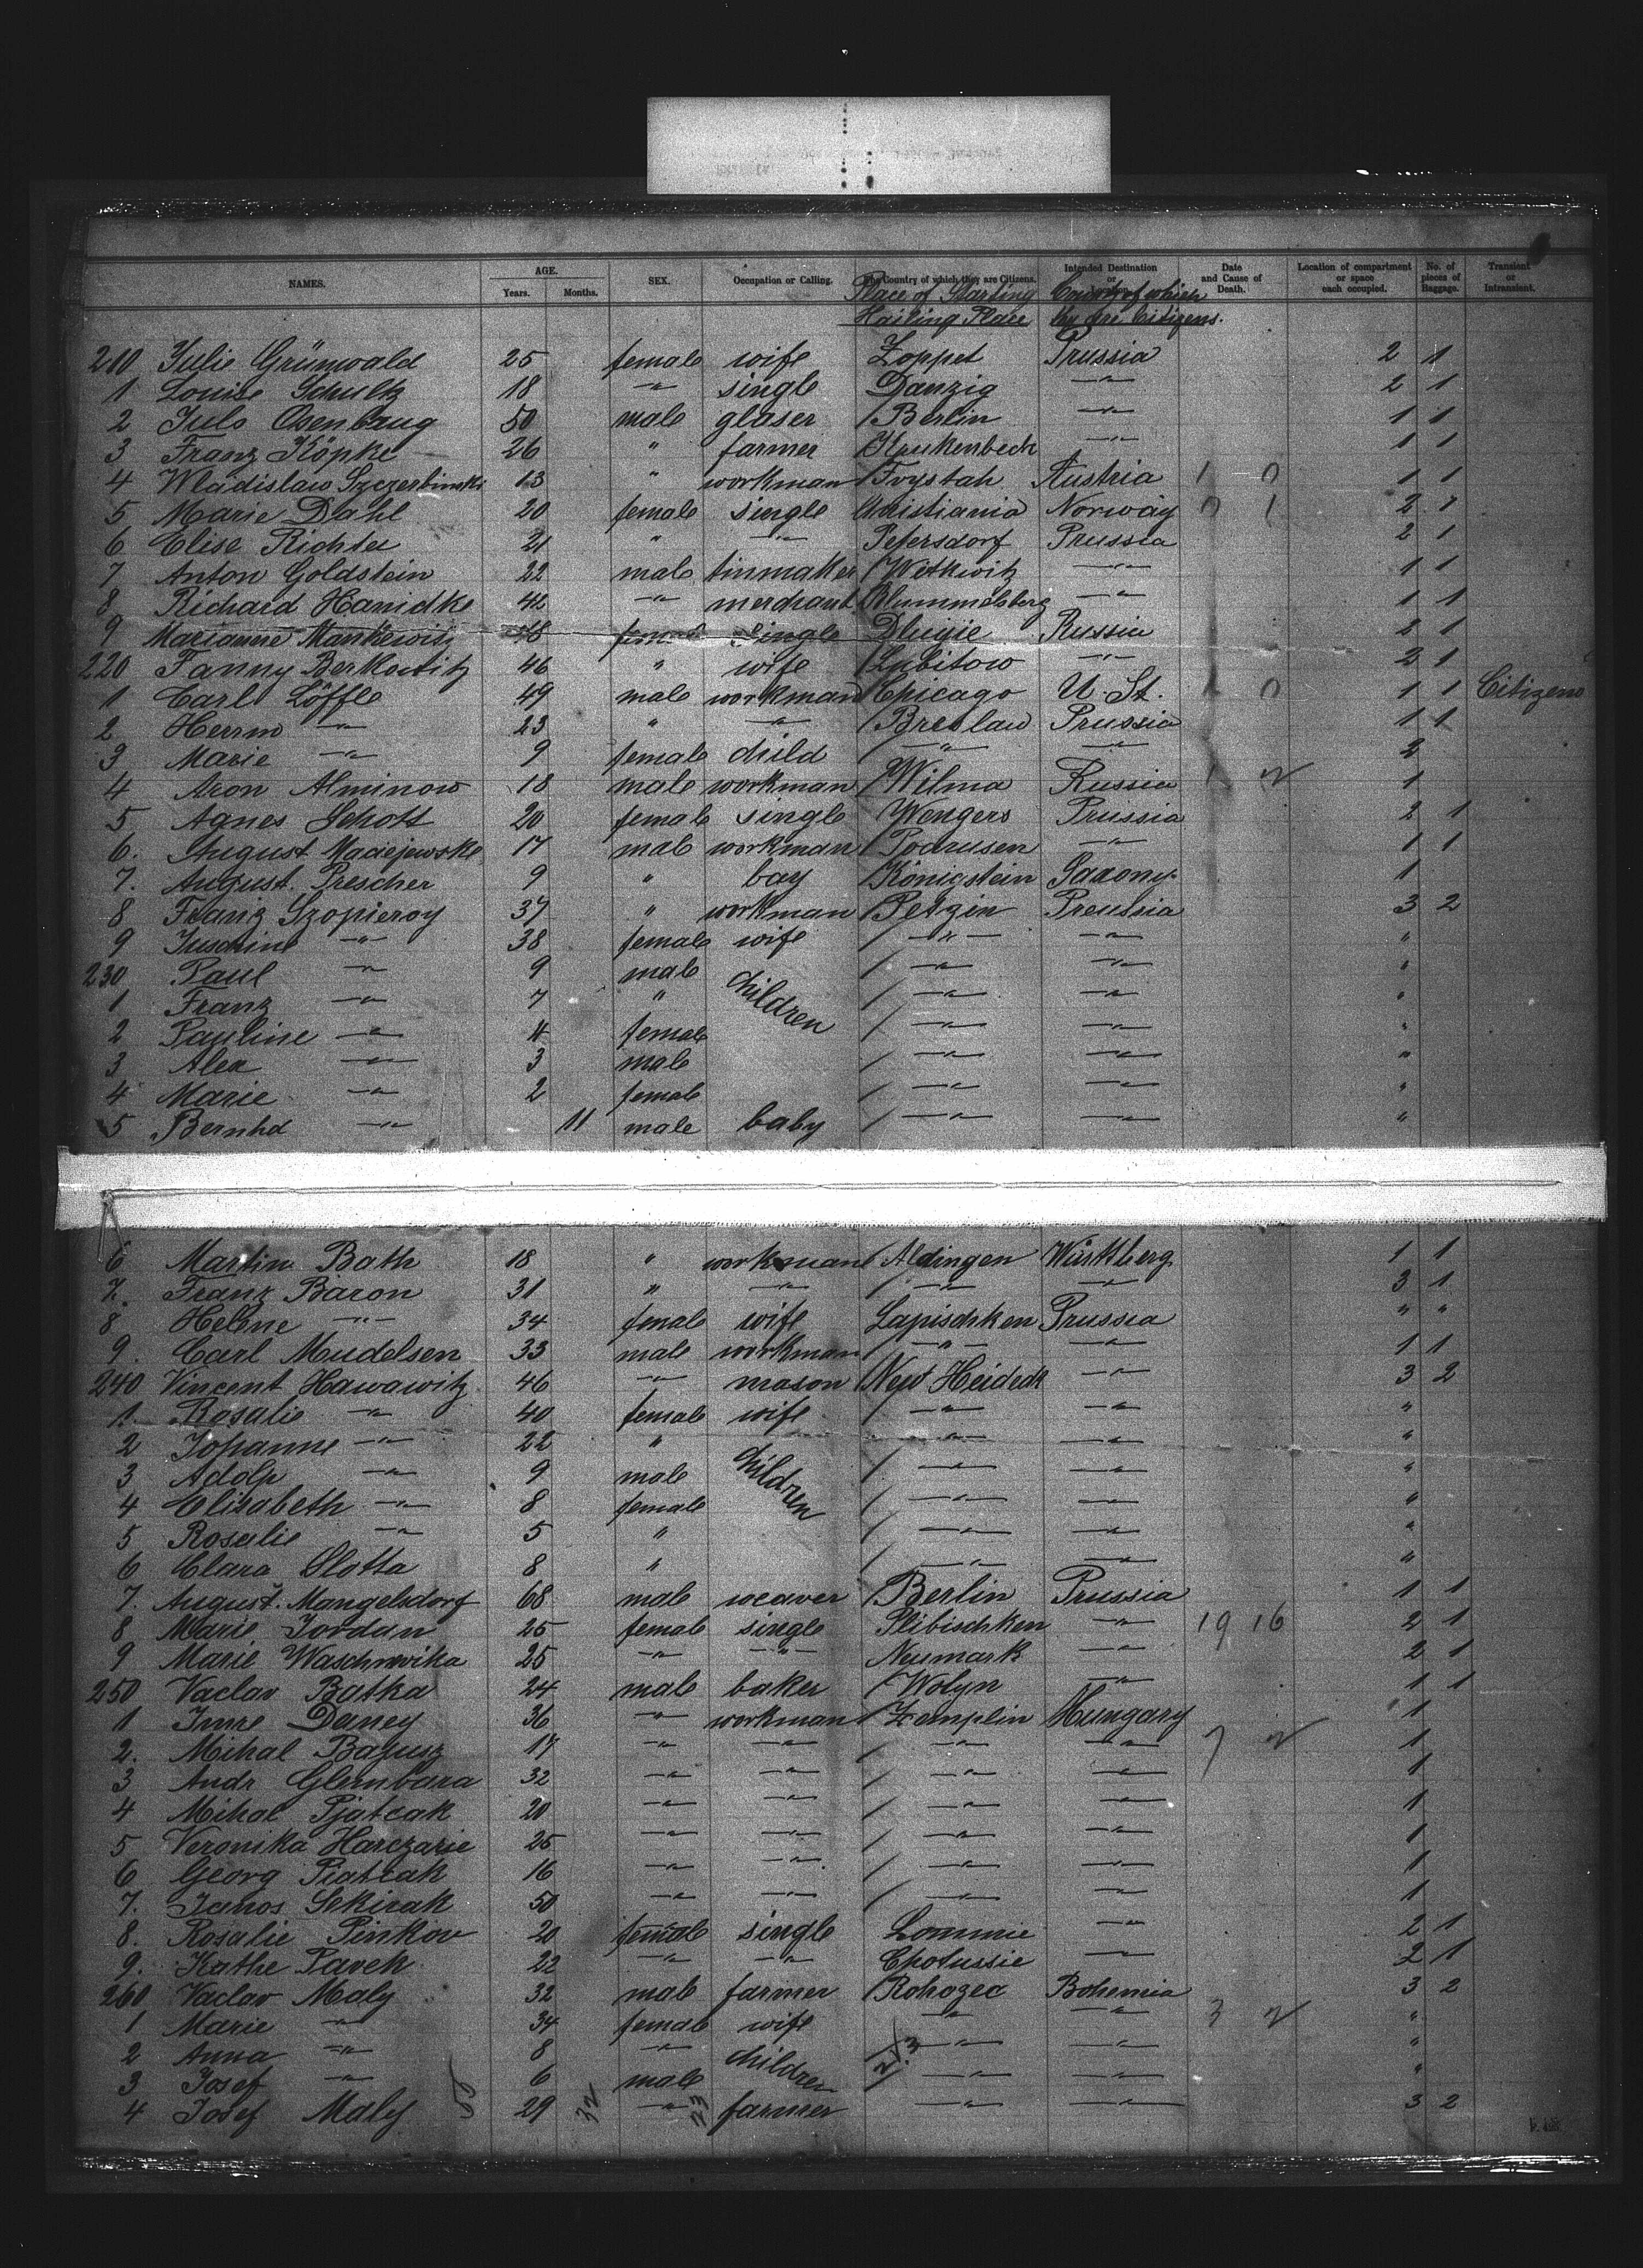 NAMES. AGE. Years. Months. SEX. Occupation or Calling. The Country of which they are Citizens. Intended Destination or Location. Date and Cause of Death. Location of compartment or space each occupied. No. of pieces of Baggage. Transient or Intransient.
Place of Starting Country of which
Hailing Place they are Citizens.
210 Julie Grünwald 25 female wife Zoppet Prussia 2 1
1 Louise Schultz 18 -"- single Danzig -"- 2 1
2 Juls Osenbrug 50 male glaser Berlin -"- 1 1
3 Franz Köpke 26 " farmer Krukenbeck -"- 1 1
4 Wladislaw Szczerbinski 13 " workman Frystak Austria 1 1
5 Marie Dahl 20 female single Christiania Norway 2 1
6 Elise Richter 21 " -"- Petersdorf Prussia 2 1
7 Anton Goldstein 22 male tinmaker Wetkwitz -"- 1 1
8 Richard Hanidke 42 -"- merchant Rummelsberg -"- 1 1
9 Marianne Mankewitz 48 female single Dlugie Russia 2 1
220 Fanny Berkowitz 46 " wife Lubitow -"- 2 1
1 Carl Löffle 49 male workman Chicago U. St. 1 1 Citizens
2 Herrm -"- 23 " -"- Breslau Prussia 1 1
3 Marie -"- 9 female child -"- -"- 2
4 Aron Alminow 18 male workman Wilma Russia 1
5 Agnes Schott 20 female single Wengers Prussia 2 1
6. August Maciejewski 17 male workman Podrusen -"- 1 1
7. August. Prescher 9 " boy Königstein Saxony 1
8 Franz Szopieroy 37 " workman Petzin Preussia 3 2
9 Juschine -"- 38 female wife -"- -"- "
230 Paul -"- 9 male children -"- -"- "
1 Franz -"- 7 " -"- -"- "
2 Pauline -"- 4 female -"- -"- "
3 Alex -"- 3 male -"- -"- "
4 Marie -"- 2 female -"- -"- "
5 Bernhd -"- 11 male baby -"- -"- "
6 Martin Bath 18 " workman Aldingen Württberg 1 1
7. Franz Baron 31 " -"- -"- -"- 3 1
8 Helene -"- 34 female wife Lapischken Prussia " "
9. Carl Mudelsen 33 male workman -"- -"- 1 1
240 Vincent Hawawitz 46 -"- mason New Heideck -"- 3 2
1. Rosalie -"- 40 female wife -"- -"- "
2 Johanne -"- 22 " children -"- -"- "
3 Adolp -"- 9 male -"- -"- "
4 Elisabeth -"- 8 female -"- -"- "
5 Rosalie -"- 5 " -"- -"- "
6 Clara Slotta 8 " -"- -"- "
7. August. Mangelsdorf 68 male weaver Berlin Prussia 1 1
8 Marie Jordan 25 female single Plibischken -"- 19 16 2 1
9 Marie Waschnwika 25 -"- -"- Neumark -"- 2 1
250 Vaclav Batka 24 male baker Wolyn -"- 1 1
1 Imre Daney 36 -"- workman Zemplin Hungary 1
2. Mihal Bajusz 17 -"- -"- -"- -"- 1
3 Andr Glembara 32 -"- -"- -"- -"- 1
4 Mihal Pjatcak 20 -"- -"- -"- -"- 1
5 Veronika Harczarie 25 -"- -"- -"- -"- 1
6 Georg Piatcak 16 -"- -"- -"- -"- 1
7. Janos Sekirak 50 -"- -"- -"- -"- 1
8. Rosalie Pinkov 20 female single Lommie -"- 2 1
9. Kathe Pavek 22 -"- -"- Chotussie -"- 2 1
260 Vaclav Maly 32 male farmer Rohozec Bohemia 3 2
1 Marie -"- 34 female wife -"- -"- "
2 Anna -"- 8 -"- children -"- -"- "
3 Josef -"- 6 male -"- -"- "
4 Josef Maly 29 32 -"- 23 farmer -"- -"- 3 2